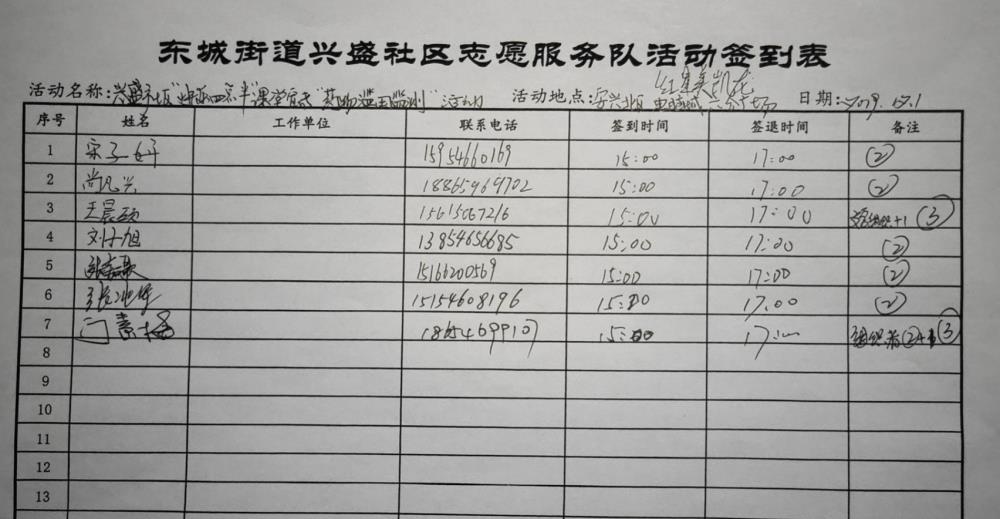 东城街道兴盛社区志愿服务队活动签到表
红星美凯龙
活动名称:兴盛社区 课堂 活动 活动地点:安兴北区 广场 日期:
序号 姓名 工作单位 联系电话 签到时间 签退时间 备注
1 宋子妤 15954660169 15:00 17:00 ②
2 尚凡兴 18865969702 15:00 17:00 ②
3 王晨硕 15615067216 15:00 17:00 +1 ③
4 刘子旭 13854656685 15:00 17:00 ②
5 15166200569 15:00 17:00 ②
6 15154608196 15:00 17:00 ②
7 门素梅 18654699107 15:00 17:00 组织者②+1 ③
8
9
10
11
12
13